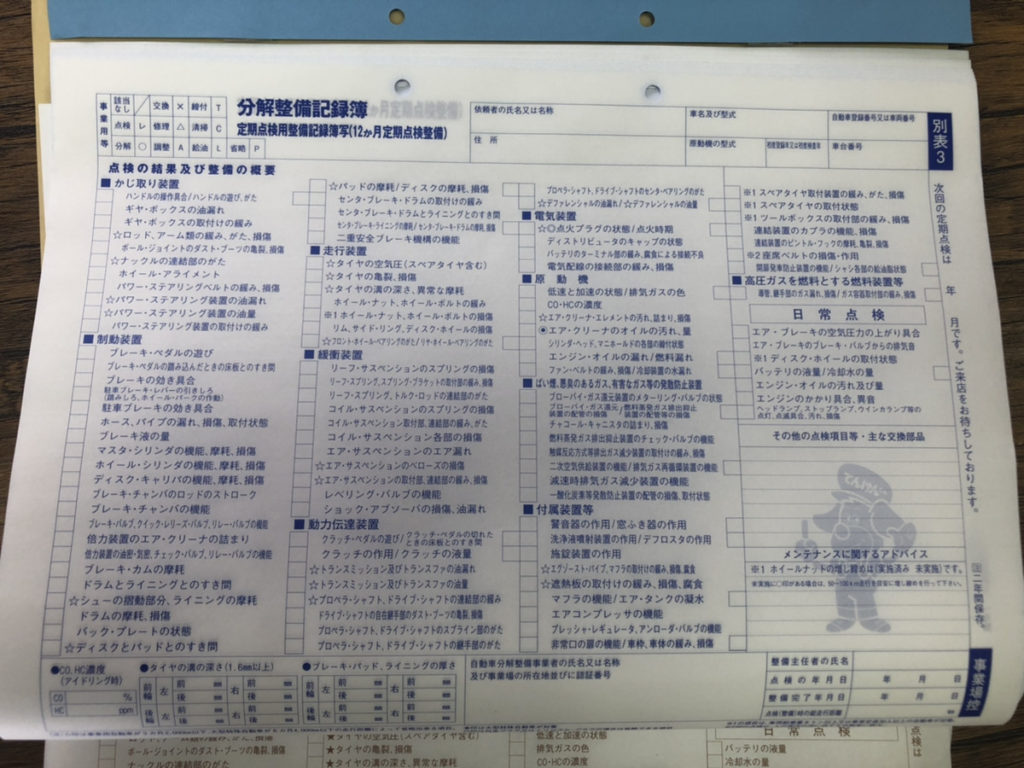 事業用等
該当なし ／ 交換 × 締付 T
点検 レ 修理 △ 清掃 C
分解 ○ 調整 A 給油 L 省略 P
分解整備記録簿
定期点検用整備記録簿写(12か月定期点検整備)
依頼者の氏名又は名称
住所
車名及び型式
原動機の型式
自動車登録番号又は車両番号
初度登録年又は初度検査年
車台番号
別表3
点検の結果及び整備の概要
■かじ取り装置
ハンドルの操作具合/ハンドルの遊び、がた
ギヤ・ボックスの油漏れ
ギヤ・ボックスの取付けの緩み
☆ロッド、アーム類の緩み、がた、損傷
ボール・ジョイントのダスト・ブーツの亀裂、損傷
☆ナックルの連結部のがた
ホイール・アライメント
パワー・ステアリングベルトの緩み、損傷
☆パワー・ステアリング装置の油漏れ
☆パワー・ステアリング装置の油量
パワー・ステアリング装置の取付けの緩み
■制動装置
ブレーキ・ペダルの遊び
ブレーキ・ペダルの踏み込んだときの床板とのすき間
ブレーキの効き具合
駐車ブレーキ・レバーの引きしろ
(踏みしろ、ホイール・パークの作動)
駐車ブレーキの効き具合
ホース、パイプの漏れ、損傷、取付状態
ブレーキ液の量
マスタ・シリンダの機能、摩耗、損傷
ホイール・シリンダの機能、摩耗、損傷
ディスク・キャリパの機能、摩耗、損傷
ブレーキ・チャンバのロッドのストローク
ブレーキ・チャンバの機能
ブレーキ・バルブ、クイック・レリーズ・バルブ、リレー・バルブの機能
倍力装置のエア・クリーナの詰まり
倍力装置の油密・気密、チェック・バルブ、リレー・バルブの機能
ブレーキ・カムの摩耗
ドラムとライニングとのすき間
☆シューの摺動部分、ライニングの摩耗
ドラムの摩耗、損傷
バック・プレートの状態
☆ディスクとパッドとのすき間
☆パッドの摩耗/ディスクの摩耗、損傷
センタ・ブレーキ・ドラムの取付けの緩み
センタ・ブレーキ・ドラムとライニングとのすき間
センタ・ブレーキ・ライニングの摩耗/センタ・ブレーキ・ドラムの摩耗、損傷
二重安全ブレーキ機構の機能
■走行装置
☆タイヤの空気圧(スペアタイヤ含む)
☆タイヤの亀裂、損傷
☆タイヤの溝の深さ、異常な摩耗
ホイール・ナット、ホイール・ボルトの緩み
※1ホイール・ナット、ホイール・ボルトの損傷
リム、サイド・リング、ディスク・ホイールの損傷
☆フロント・ホイール・ベアリングのがた/リヤ・ホイール・ベアリングのがた
■緩衝装置
リーフ・サスペンションのスプリングの損傷
リーフ・スプリング、スプリング・ブラケットの取付部の緩み、損傷
リーフ・スプリング、トルク・ロッドの連結部のがた
コイル・サスペンションのスプリングの損傷
コイル・サスペンション取付部、連結部の緩み、がた
コイル・サスペンション各部の損傷
エア・サスペンションのエア漏れ
☆エア・サスペンションのベローズの損傷
☆エア・サスペンションの取付部、連結部の緩み、損傷
レベリング・バルブの機能
ショック・アブソーバの損傷、油漏れ
■動力伝達装置
クラッチ・ペダルの遊び/クラッチ・ペダルの切れたときの床板とのすき間
クラッチの作用/クラッチの液量
☆トランスミッション及びトランスファの油漏れ
☆トランスミッション及びトランスファの油量
☆プロペラ・シャフト、ドライブ・シャフトの連結部の緩み
ドライブ・シャフトの自在継手部のダスト・ブーツの亀裂、損傷
プロペラ・シャフト、ドライブ・シャフトのスプライン部のがた
プロペラ・シャフト、ドライブ・シャフトの継手部のがた
プロペラ・シャフト、ドライブ・シャフトのセンタ・ベアリングのがた
☆デファレンシャルの油漏れ/デファレンシャルの油量
■電気装置
☆◎点火プラグの状態/点火時期
ディストリビュータのキャップの状態
バッテリのターミナル部の緩み、腐食による接続不良
電気配線の接続部の緩み、損傷
■原動機
低速と加速の状態/排気ガスの色
CO・HCの濃度
☆エア・クリーナ・エレメントの汚れ、詰まり、損傷
◉エア・クリーナのオイルの汚れ、量
シリンダ・ヘッド、マニホールドの各部の締付状態
エンジン・オイルの漏れ/燃料漏れ
ファン・ベルトの緩み、損傷/冷却装置の水漏れ
■ばい煙、悪臭のあるガス、有害なガス等の発散防止装置
ブローバイ・ガス還元装置のメターリング・バルブの状態
ブローバイ・ガス還元装置の配管の損傷/燃料蒸発ガス排出抑止装置の配管等の損傷
チャコール・キャニスタの詰まり、損傷
燃料蒸発ガス排出抑止装置のチェック・バルブの機能
触媒反応方式等排出ガス減少装置の取付けの緩み、損傷
二次空気供給装置の機能/排気ガス再循環装置の機能
減速時排気ガス減少装置の機能
一酸化炭素等発散防止装置の配管の損傷、取付状態
■付属装置等
警音器の作用/窓ふき器の作用
洗浄液噴射装置の作用/デフロスタの作用
施錠装置の作用
☆エグゾースト・パイプ、マフラの取付けの緩み、損傷、腐食
☆遮熱板の取付けの緩み、損傷、腐食
マフラの機能/エア・タンクの凝水
エアコンプレッサの機能
プレッシャ・レギュレータ、アンローダ・バルブの機能
非常口の扉の機能/車枠、車体の緩み、損傷
※1スペアタイヤ取付装置の緩み、がた、損傷
※1スペアタイヤの取付状態
※1ツールボックスの取付部の緩み、損傷
連結装置のカプラの機能、損傷
連結装置のピントル・フックの摩耗、亀裂、損傷
※2座席ベルトの損傷・作用
開扉発車防止装置の機能/シャシ各部の給油脂状態
■高圧ガスを燃料とする燃料装置等
導管、継手部のガス漏れ、損傷/ガス容器取付部の緩み、損傷
日常点検
エア・ブレーキの空気圧力の上がり具合
エア・ブレーキのブレーキ・バルブからの排気音
※1ディスク・ホイールの取付状態
バッテリの液量/冷却水の量
エンジン・オイルの汚れ及び量
エンジンのかかり具合、異音
ヘッドランプ、ストップランプ、ウインカランプ等の点灯、点滅具合、汚れ、損傷
その他の点検項目等・主な交換部品
てんけんくん
メンテナンスに関するアドバイス
※1ホイールナットの増し締めは(実施済み 未実施)です。
未実施に○印がある場合は、50〜100km走行を目安に増し締めを行って下さい。
次回の定期点検は 年 月です。ご来店をお待ちしております。
注二年間保存。
●CO、HC濃度
(アイドリング時)
CO %
HC ppm
●タイヤの溝の深さ(1.6mm以上)
前輪 左 前 mm 右 前 mm
後 mm 後 mm
後輪 左 前 mm 右 前 mm
後 mm 後 mm
●ブレーキ・パッド、ライニングの厚さ
前輪 左 前 mm 右 前 mm
後 mm 後 mm
後輪 左 前 mm 右 前 mm
後 mm 後 mm
自動車分解整備事業者の氏名又は名称
及び事業場の所在地並びに認証番号
整備主任者の氏名
点検の年月日 年 月 日
整備完了年月日 年 月 日
点検(整備)時の総走行距離 km
事業場控
ボール・ジョイントのダスト・ブーツの亀裂、損傷
ナックルの連結部のがた
★タイヤの空気圧(スペアタイヤ含む)
★タイヤの亀裂、損傷
★タイヤの溝の深さ、異常な摩耗
低速と加速の状態
排気ガスの色
CO・HCの濃度
日常点検
バッテリの液量
冷却水の量
点検は